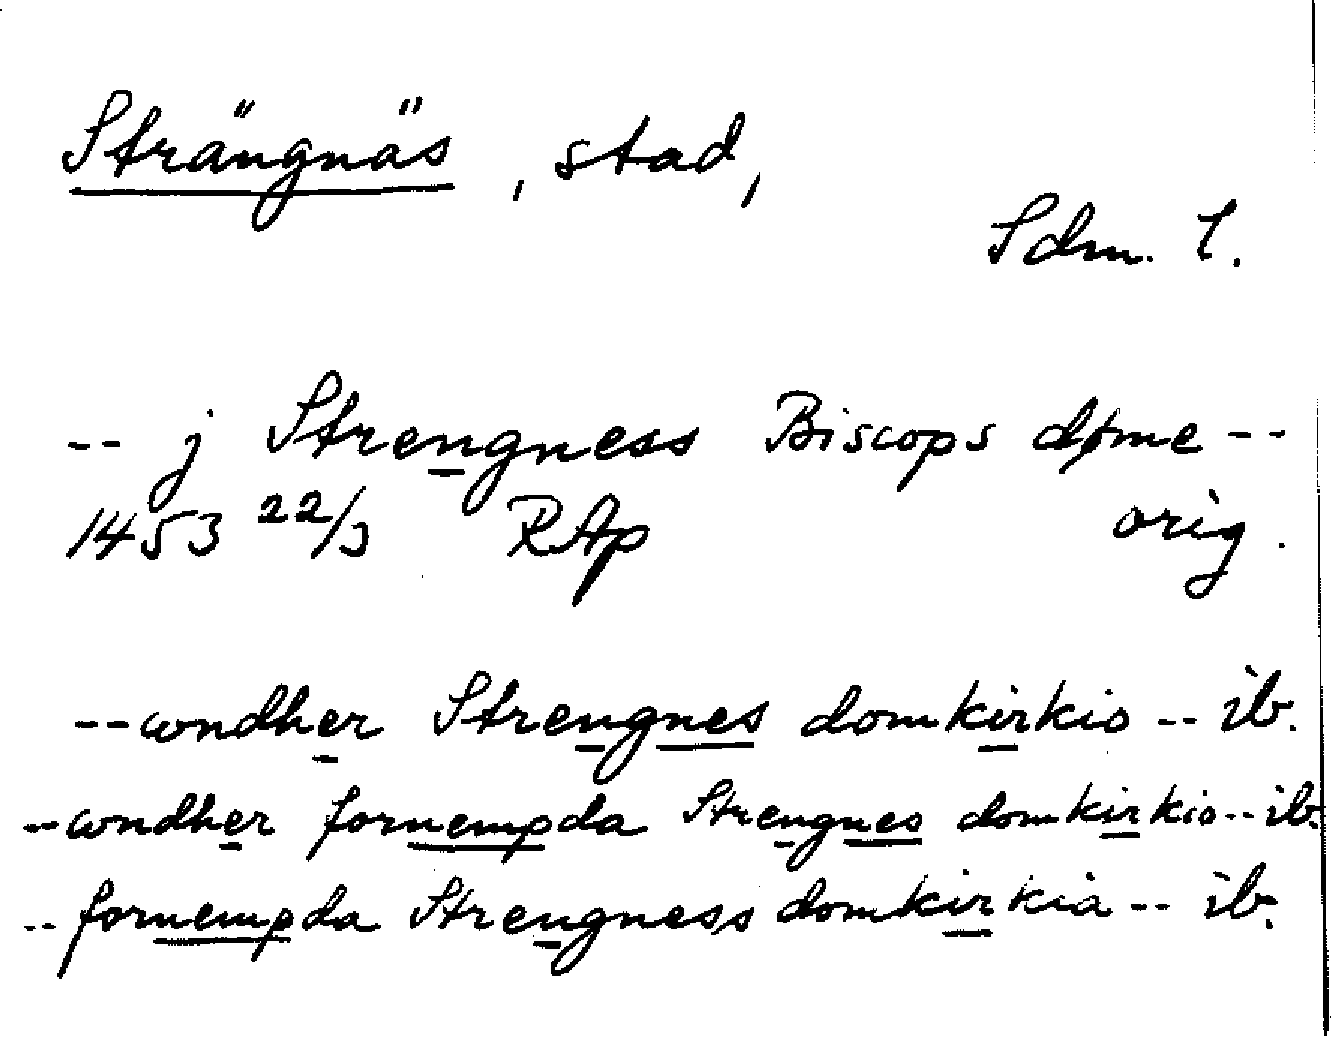 Strängnäs, stad,
Sdm. l.
-- j Strengness Biscops døme --
1453 22/3 RAp orig.
-- wndher Strengnes domkirkio -- ib.
-- wndher fornempda Strengnes domkirkio -- ib.
-- fornempda Strengness domkirkia -- ib.